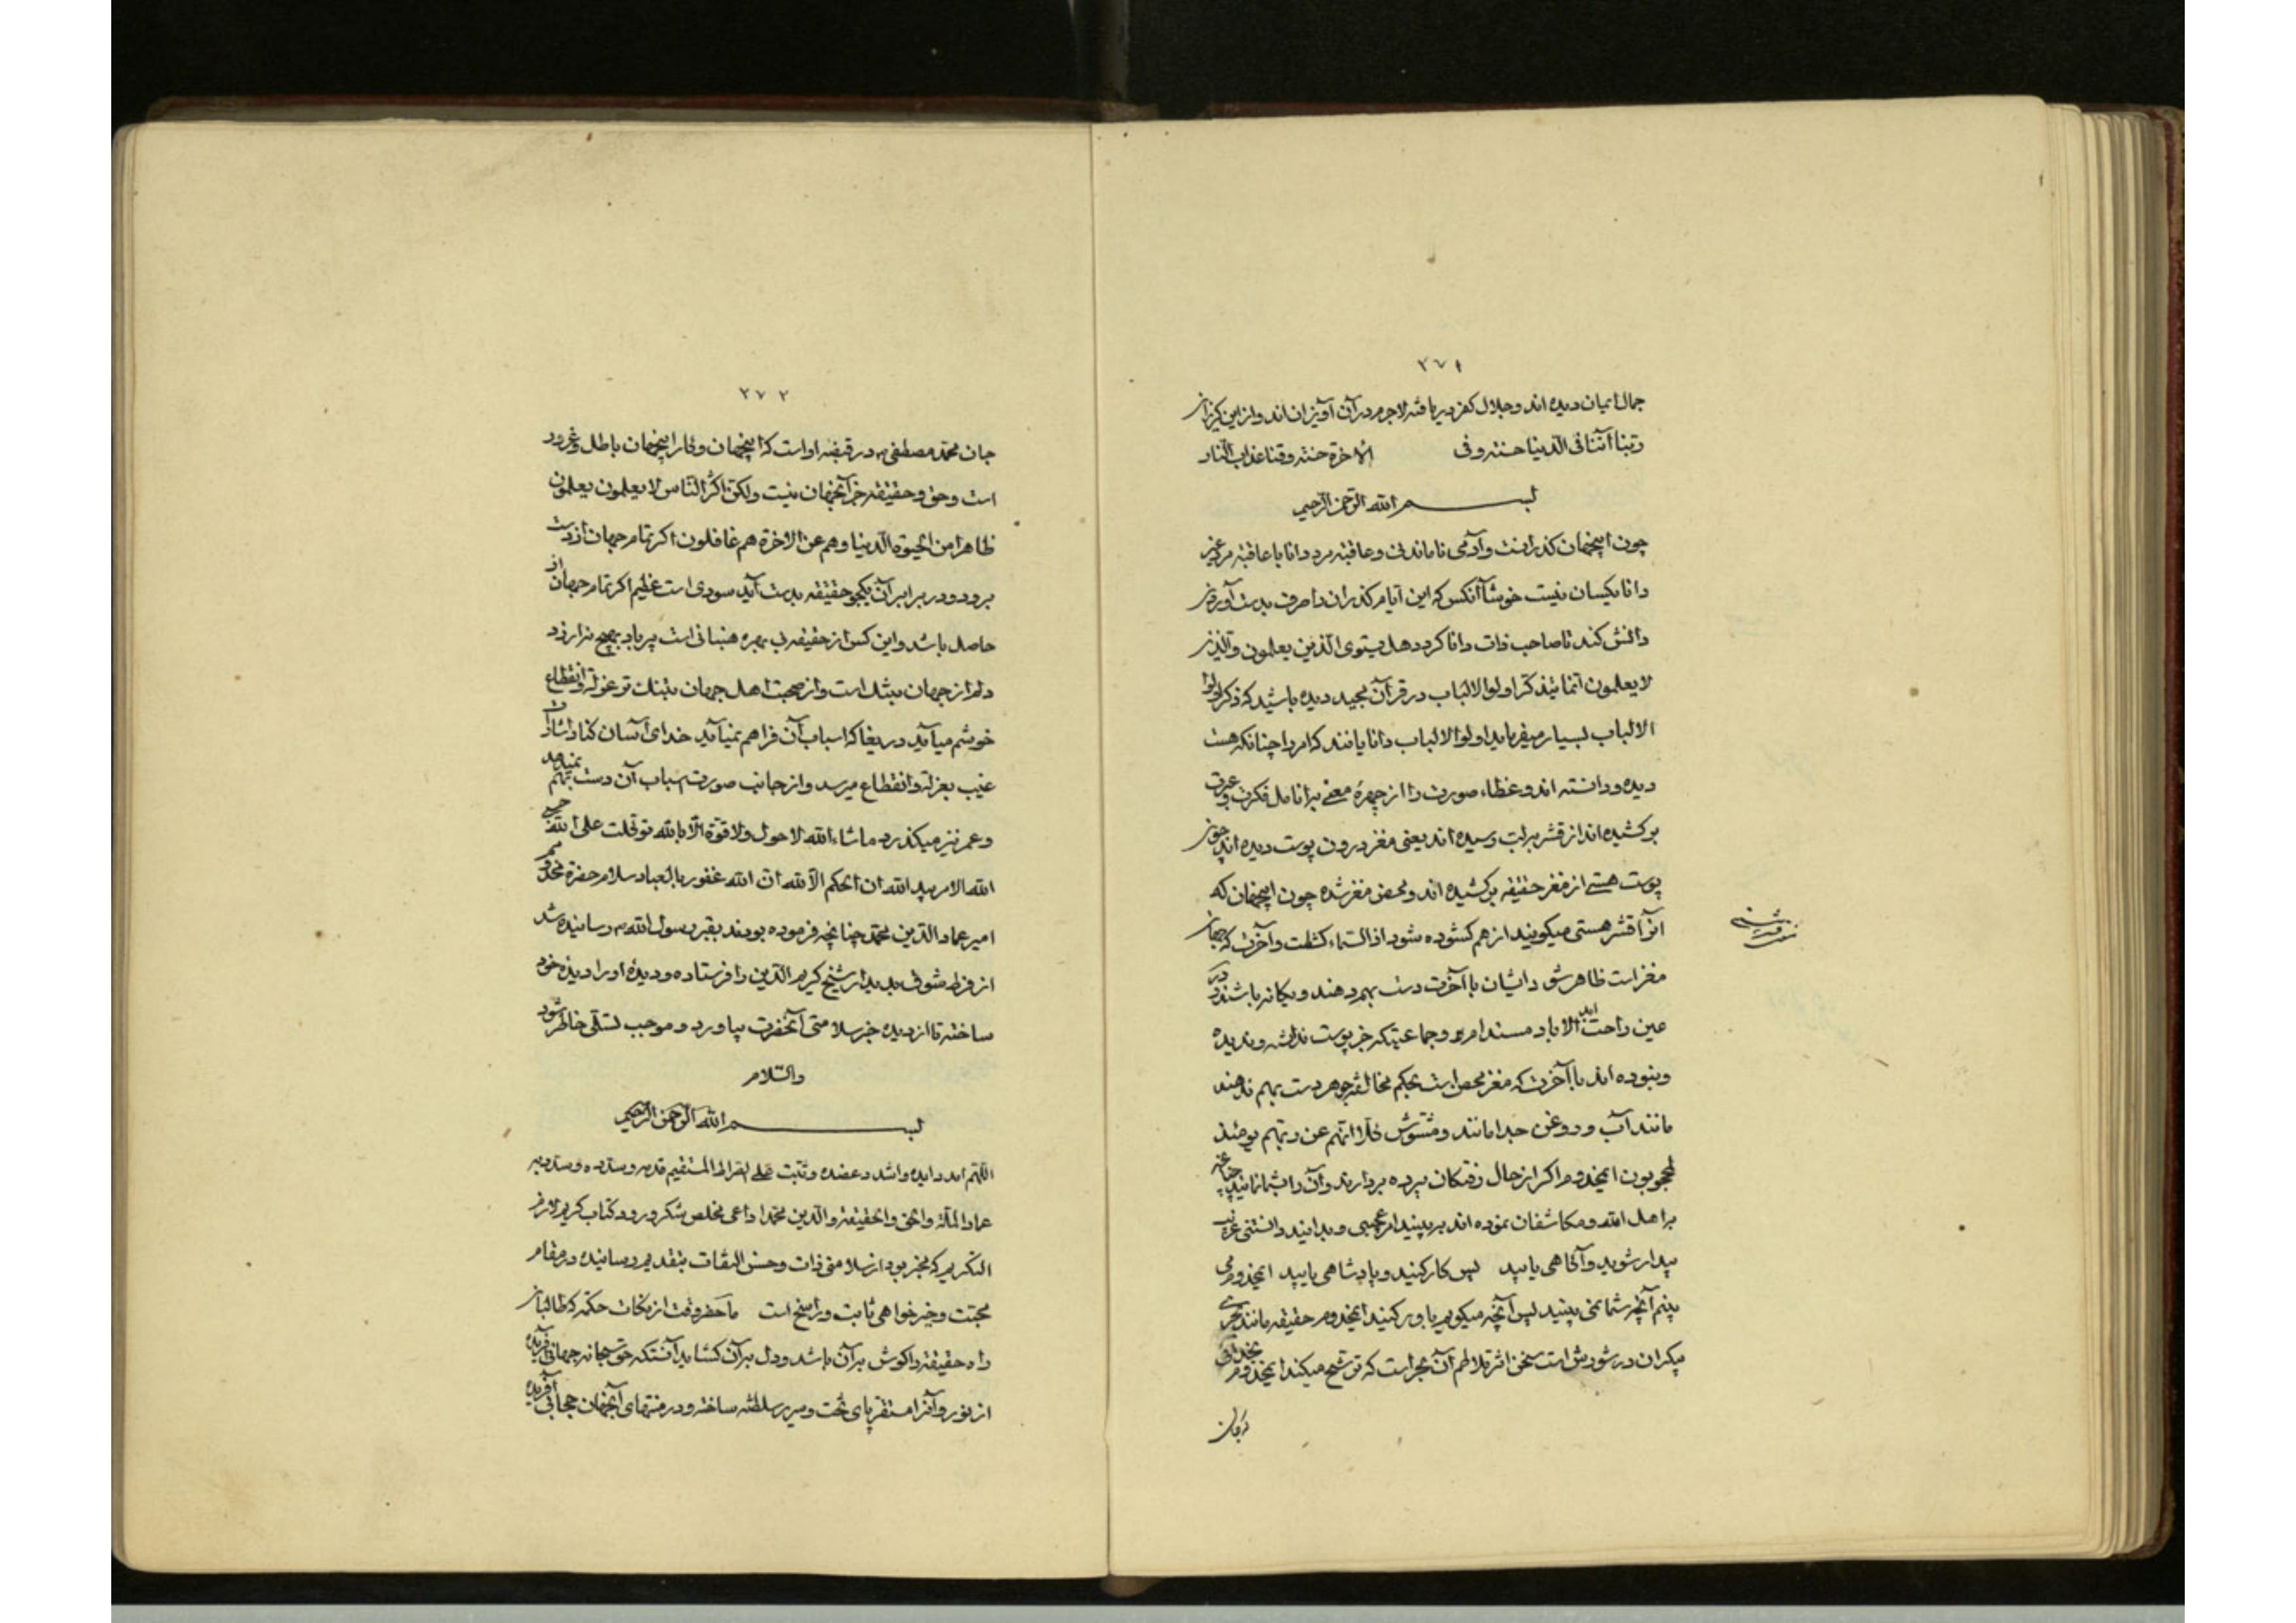 ۲۷۱
جمال ایمان دیده اند و جلال کفر دریافته لاجرم در آن آویزان اند و از این گریزان
ربنا آتنا فی الدنیا حسنة و فی الاخرة حسنة و قنا عذاب النار
بسم الله الرحمن الرحیم
چون اینجهان گذرانست و آدمی ناماندنی و عاقبة مرد دانا با عاقبة مرد غیر
دانا یکسان نیست خوشا آنکس که این ایام گذران را صرف بدست آوردن
دانش کند تا صاحب ذات دانا گردد هل یستوی الذین یعلمون والذین
لا یعلمون انما یتذکر اولوا الالباب در قرآن مجید دیده باشید که ذکر اولوا
الالباب بسیار میفرماید اولوا الالباب دانایانند که امر را چنانکه هست
دیده و دانسته اند و غطاء صورت را از چهرهٔ معنی بانامل فکرت و عبرت
برکشیده اند از قشر بلب رسیده اند یعنی مغز درون پوست دیده اند چون
پوست هستی از مغز حقیقه برکشیده اند و محض مغز شده چون اینجهان که
آنرا قشر هستی میگویند از هم گشوده شود اذا السماء کشطت و آخرت که جهان
مغز است ظاهر شود ایشان با آخرت دست بهم دهند و یگانه باشند و در
عین راحت ابد الاباد مستدام و جماعتیکه جز پوست ندانسته و ندیده
و نبوده اند با آخرت که مغز محض است بحکم مخالفة جوهر دست بهم ندهند
مانند آب و روغن جدا مانند و مشوش کلا انهم عن ربهم یومئذ
لمحجوبون ایمخدوم اگر از حال رفتگان پرده بردارند و آن را بشما نمایند چنانچه
بر اهل الله و مکاشفان نموده اند بر بینید امر عجیبی و بدانید دانستنی غریب
بیدار شوید و آگاهی یابید پس کار کنید و پادشاهی یابید ایمخدوم می
بینم آنچه شما نمی بینید پس آنچه میگویم باور کنید ایمخدوم حقیقه مانند بحری
بیکران در شورش است سخن اثر تلاطم آن بحر است که ترشح میکند ایمخدوم
۲۷۲
جان محمد مصطفی در قبضه اوست که اینجهان و کار اینجهان باطل و غرور
است و حق و حقیقه جز آنجهان نیست ولکن اکثر الناس لا یعلمون یعلمون
ظاهرا من الحیوة الدنیا و هم عن الاخرة هم غافلون اگر تمام جهان از دست
برود و در برابر آن یکجو حقیقه بدست آید سودی است عظیم اگر تمام جهان
حاصل باشد و این کس از حقیقه بی بهره هنبانی است پر باد بهیچ نیرزد
دلم از جهان بتنگ است و از صحبت اهل جهان بتنگ تر عزلة و انقطاع
خوشم میآید دریغا که اسباب آن فراهم نمیآید خدای آسان کناد اشارت
غیب بعزلة و انقطاع میرسد و از جانب صورت اسباب آن دست بهم نمیدهد
و عمر نیز میگذرد ماشاء الله لا حول ولا قوة الا بالله توکلت علی الله حسبی
الله الامر بید الله ان الحکم الا لله ان الله غفور بالعباد سلام حضرة مخدوم
امیر عماد الدین محمد چنانچه فرموده بودند بقبر رسول الله رسانیده شد
از فرط شوق بدیدار شیخ کریم الدین را فرستاده و دیدهٔ او را دیدهٔ خود
ساخته تا از دیده خبر سلامتی آنحضرت بیاورد و موجب تسلی خاطر شود
والسلام
بسم الله الرحمن الرحیم
اللهم امد و ایده و ارشد و عضده و ثبت علی الصراط المستقیم
عماد الملة والحق والحقیقة والدین محمدا داعی مخلص شکر ورود کتاب کریم لازم
التکریم که مخبر بود از سلامتی ذات و حسن التفات بتقدیم رسانیده در مقام
محبت و خیرخواهی ثابت و راسخ است ماحضر وقت از نکات حکم که طالبان
راه حقیقة را گوش بر آن باشد و دل بر آن گشاید آنستکه حق سبحانه جهانی آفریده
از نور و آنرا مستقر پای تخت و سریر سلطنة ساخته و در منتهای آنجهان حجابی آفریده